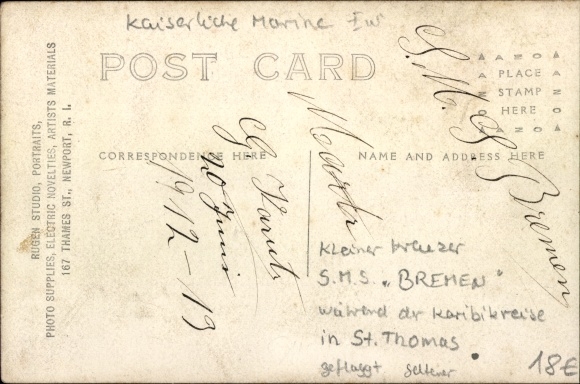 Kaiserliche Marine
POST CARD
AZO
PLACE
STAMP
HERE
AZO
CORRESPONDENCE HERE
NAME AND ADDRESS HERE
RUGEN STUDIO, PORTRAITS,
PHOTO SUPPLIES, ELECTRIC NOVELTIES, ARTISTS MATERIALS
167 THAMES ST., NEWPORT, R. I.
S.M.S Bremen
1912-13
Kleiner Kreuzer
S.M.S. „BREMEN"
während dr Karibikreise
in St. Thomas
geflaggt seltener
18€